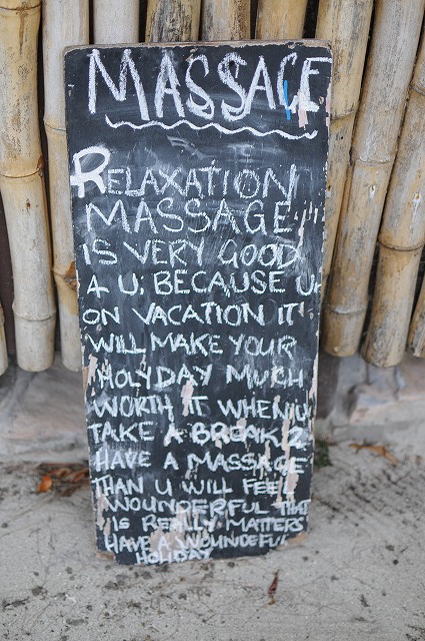 MASSAGE
RELAXATION
MASSAGE
IS VERY GOOD
4 U, BECAUSE U
ON VACATION IT
WILL MAKE YOUR
HOLYDAY MUCH
WORTH IT WHEN U
TAKE A BREAK 2
HAVE A MASSAGE
THAN U WILL FEEL
WOUNDERFUL THAT
IS REALLY MATTERS
HAVE A WOUNDEFUL
HOLIDAY